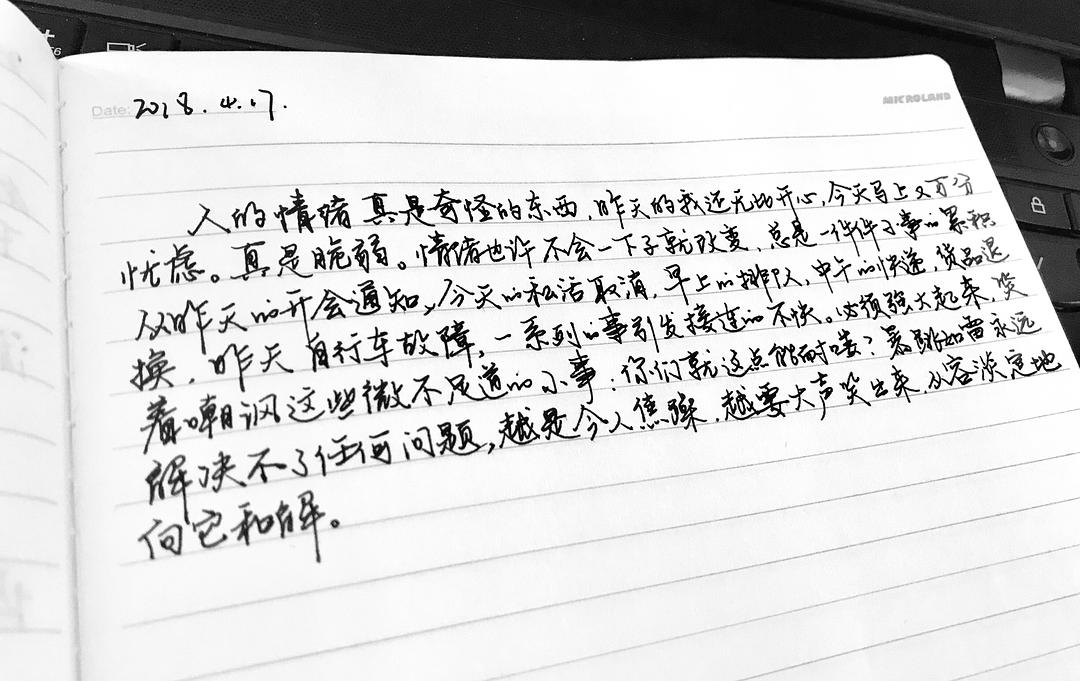 Date: 2018.4.17.
MICROLAND
人的情绪真是奇怪的东西,昨天的我还无比开心,今天马上又百分
忧虑。真是脆弱。情绪也许不会一下子就改变,总是一件件小事的累积
从昨天的开会通知、今天的私活取消,早上的排队,中午的快递,货品退
换,昨天自行车故障,一系列的事引发接连的不快。必须强大起来,笑
着嘲讽这些微不足道的小事:你们就这点能耐喽?暴跳如雷永远
解决不了任何问题,越是令人焦躁,越要大声笑出来,从容淡定地
向它和解。